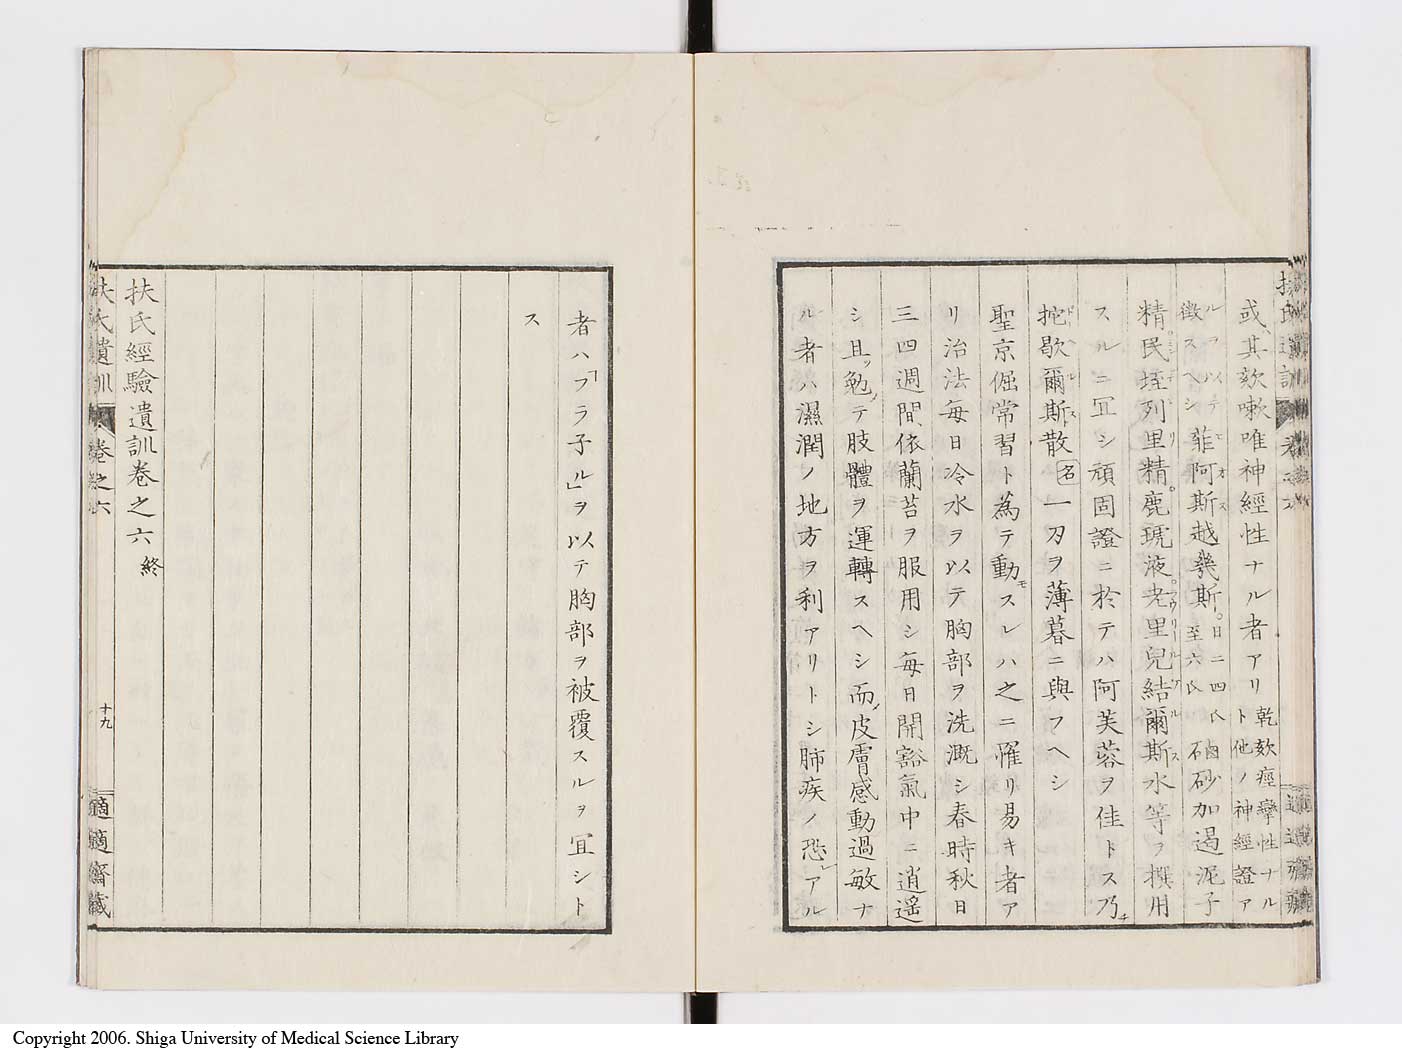 或其欬嗽唯神經性ナル者アリ乾欬痙攣性ナル
ト他ノ神經證ア
ルヲ以テ
徴スヘシ菲阿斯越幾斯日二四氏
至六氏硇砂加遏泥子
精民垤列里精鹿琥液老里兒結爾斯水等ヲ撰用
スルニ冝シ頑固證ニ於テハ阿芙蓉ヲ佳トス乃チ
挓歇爾斯散名一刄ヲ薄暮ニ與フヘシ
聖京倔常習ト為テ動モスレハ之ニ罹リ易キ者ア
リ治法毎日冷水ヲ以テ胸部ヲ洗漑シ春時秋日
三四週間依蘭苔ヲ服用シ毎日開豁氣中ニ逍遥
シ且ツ勉メテ肢體ヲ運轉スヘシ而皮膚感動過敏ナ
ル者ハ濕潤ノ地方ヲ利アリトシ肺疾ノ恐レアル
者ハ「フラ子ル」ヲ以テ胸部ヲ被覆スルヲ冝シト
ス
扶氏經驗遺訓卷之六 終
扶氏遺訓 卷之六 十九 適適齋藏
Copyright 2006. Shiga University of Medical Science Library